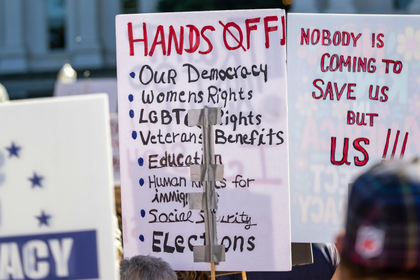 HANDS OFF!
• Our Democracy
• Womens Rights
LGBTQ Rights
• Veterans Benefits
• Education
• Human Rights for
immig
• Social Security
• Elections
NOBODY IS
COMING TO
SAVE US
BUT
US !!!
ACY